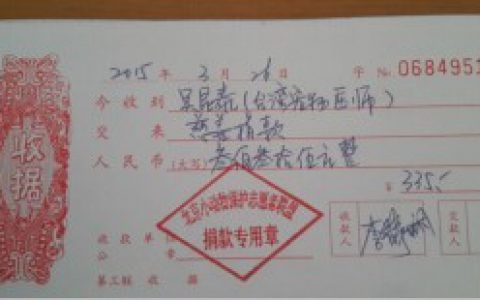 收据
2015 年 3 月 26 日 字 No 0684951
今收到 吴昌泰(台湾宠物医师)
交来 慈善捐款
人民币(大写) 叁佰叁拾伍元整
¥ 335.-
北京小动物保护志愿者联盟
捐款专用章
收款单位
公章
收款人
交款人
第三联 收据